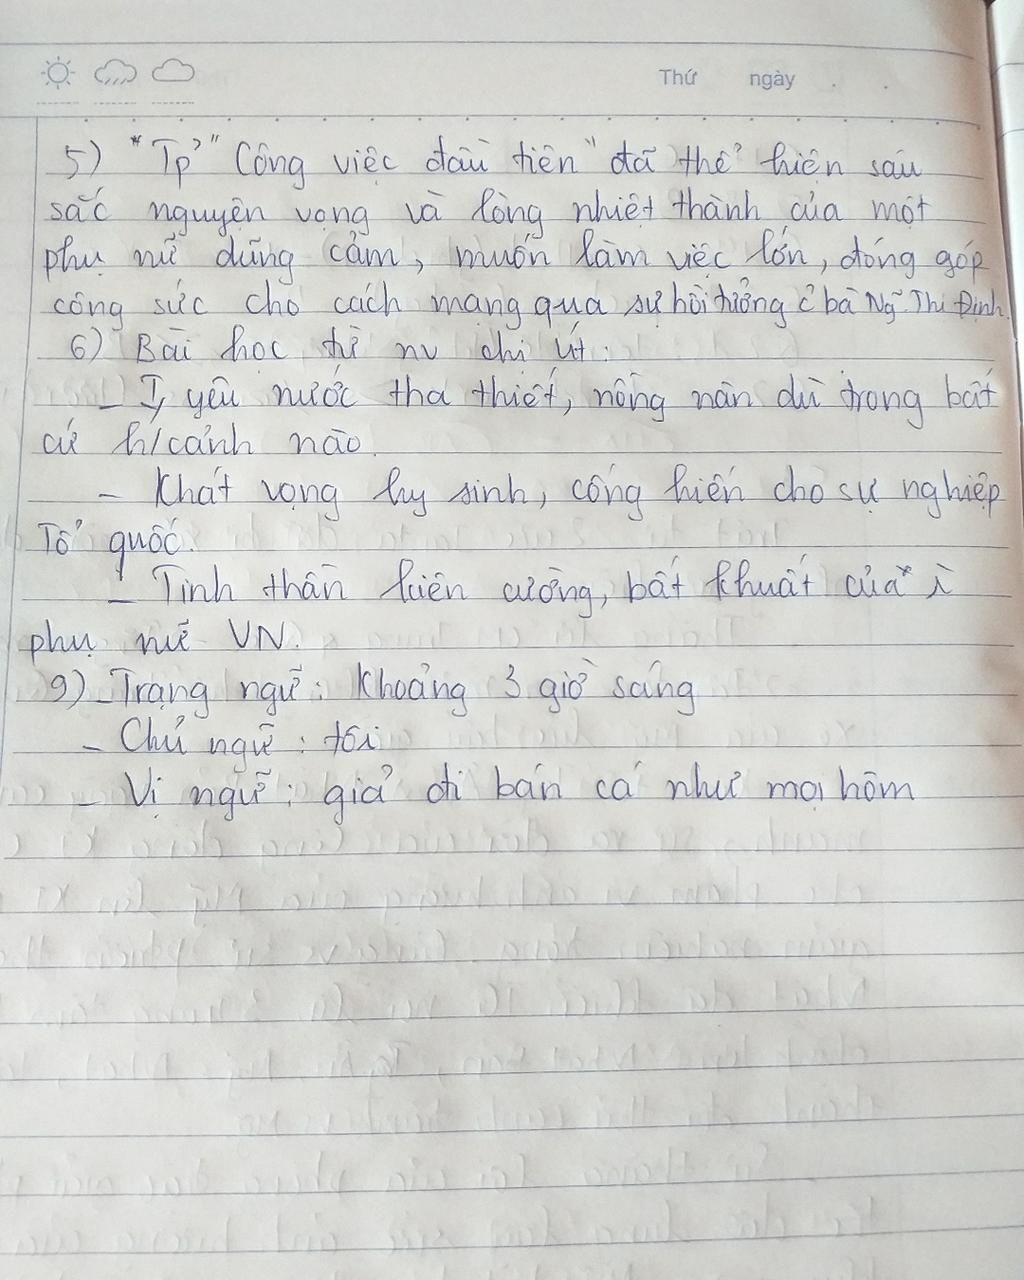 Thứ ngày
5) "Tp" "Công việc đầu tiên" đã thể hiện sâu
sắc nguyện vọng và lòng nhiệt thành của một
phụ nữ dũng cảm, muốn làm việc lớn, đóng góp
công sức cho cách mạng qua sự hồi tưởng c̉ bà Ng̃. Thị Định.
6) Bài học từ nv chị Út:
yêu nước tha thiết, nồng nàn dù trong bất
cứ h/cảnh nào.
- Khát vọng hy sinh, cống hiến cho sự nghiệp
Tổ quốc.
- Tinh thần kiên cường, bất khuất của
phụ nữ VN.
9) - Trạng ngữ: Khoảng 3 giờ sáng
- Chủ ngữ: tôi
- Vị ngữ: giả đi bán cá như mọi hôm